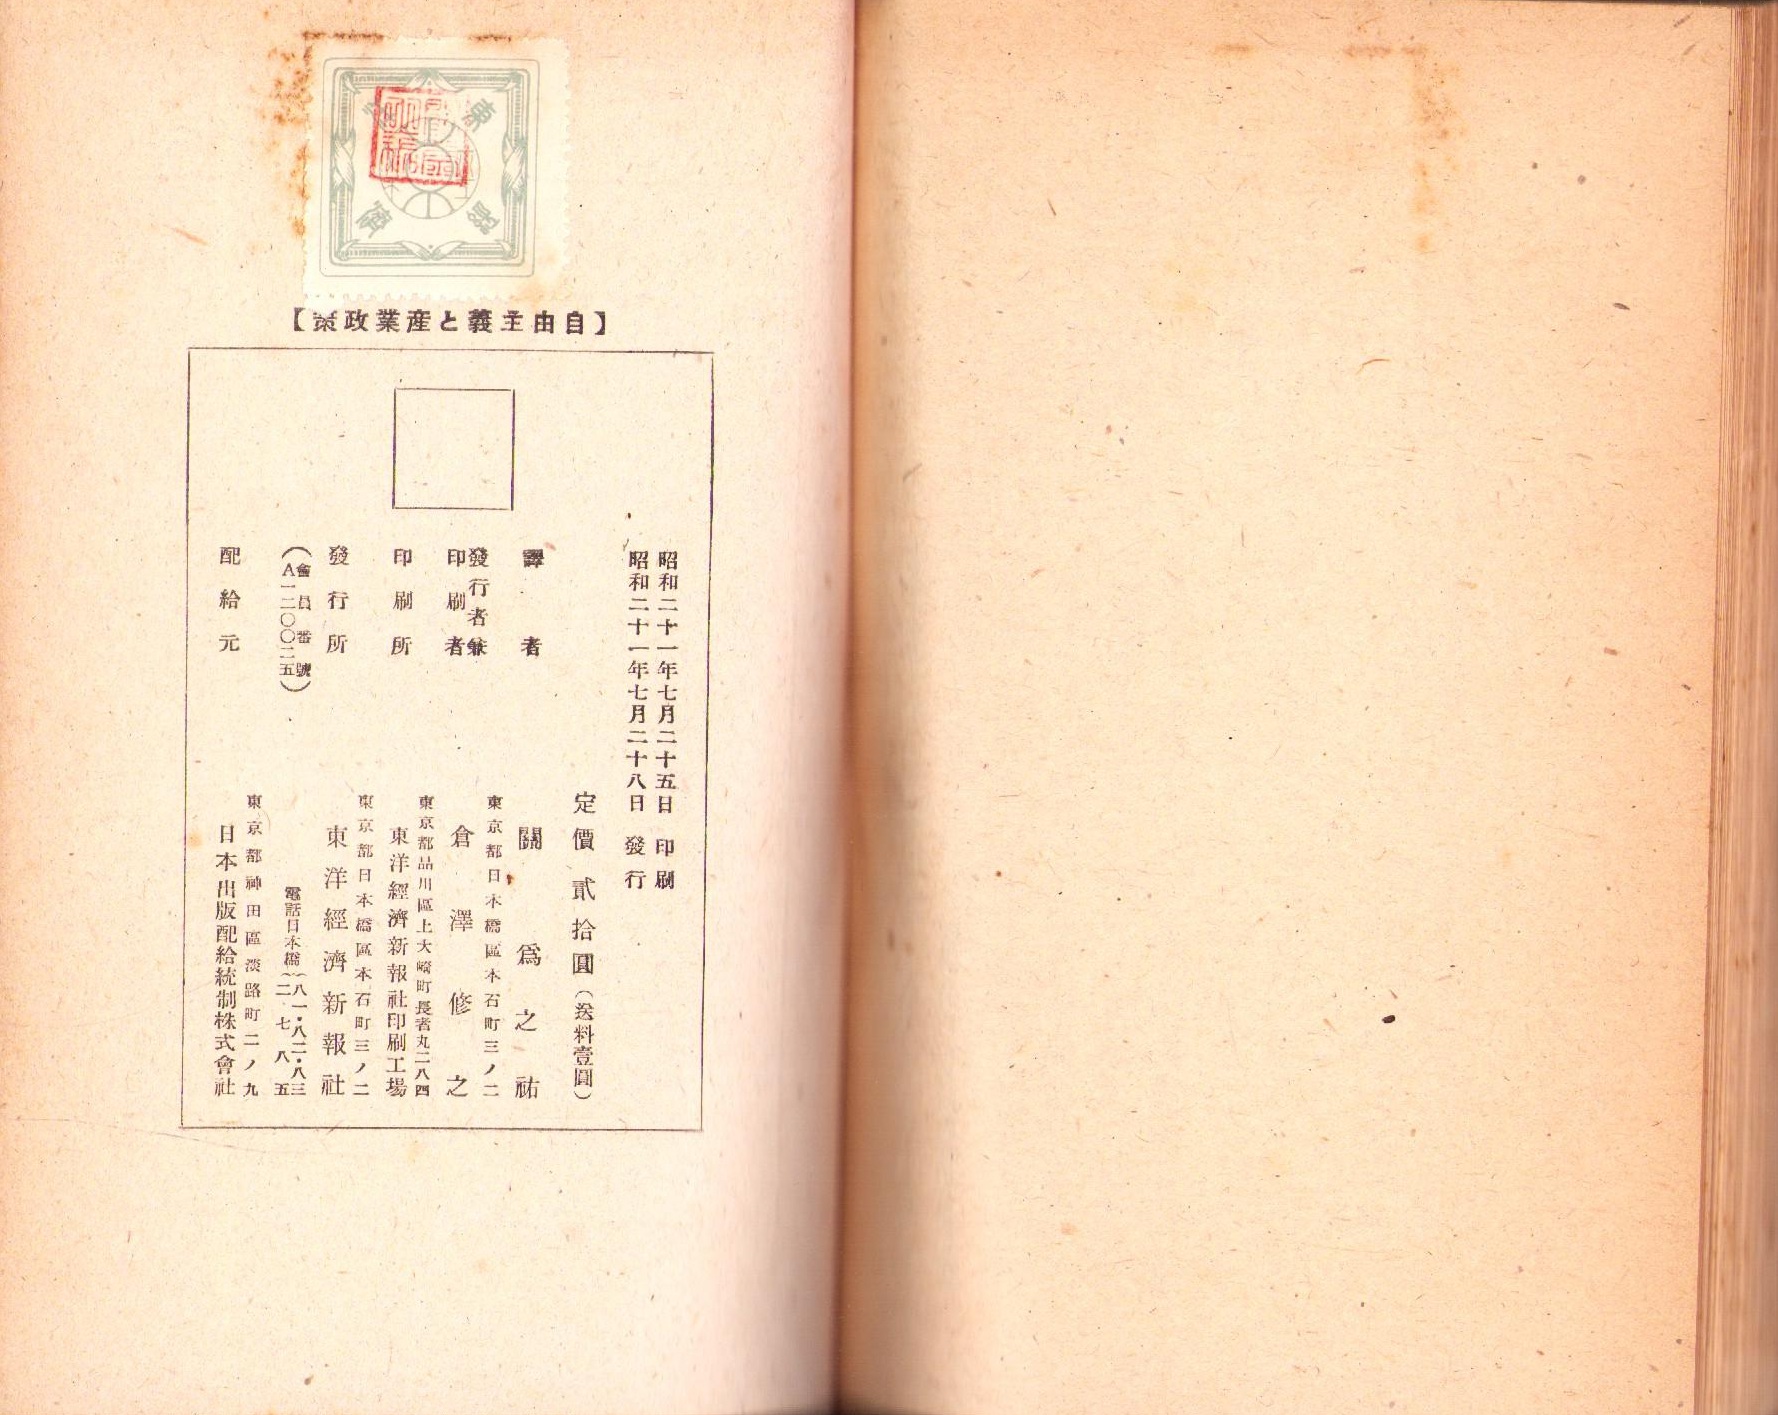 東洋經濟
【自由主義と産業政策】
昭和二十一年七月二十五日 印刷
昭和二十一年七月二十八日 發行
定價貳拾圓(送料壹圓)
譯者 關爲之祐
東京都日本橋區本石町三ノ二
發行者兼
印刷者 倉澤修之
東京都品川區上大崎町長者丸二八四
印刷所 東洋經濟新報社印刷工場
東京都日本橋區本石町三ノ二
發行所 東洋經濟新報社
(會員番號
A一二〇〇二五)
電話日本橋(八一・八二・八三
二七八五
東京都神田區淡路町二ノ九
配給元 日本出版配給統制株式會社